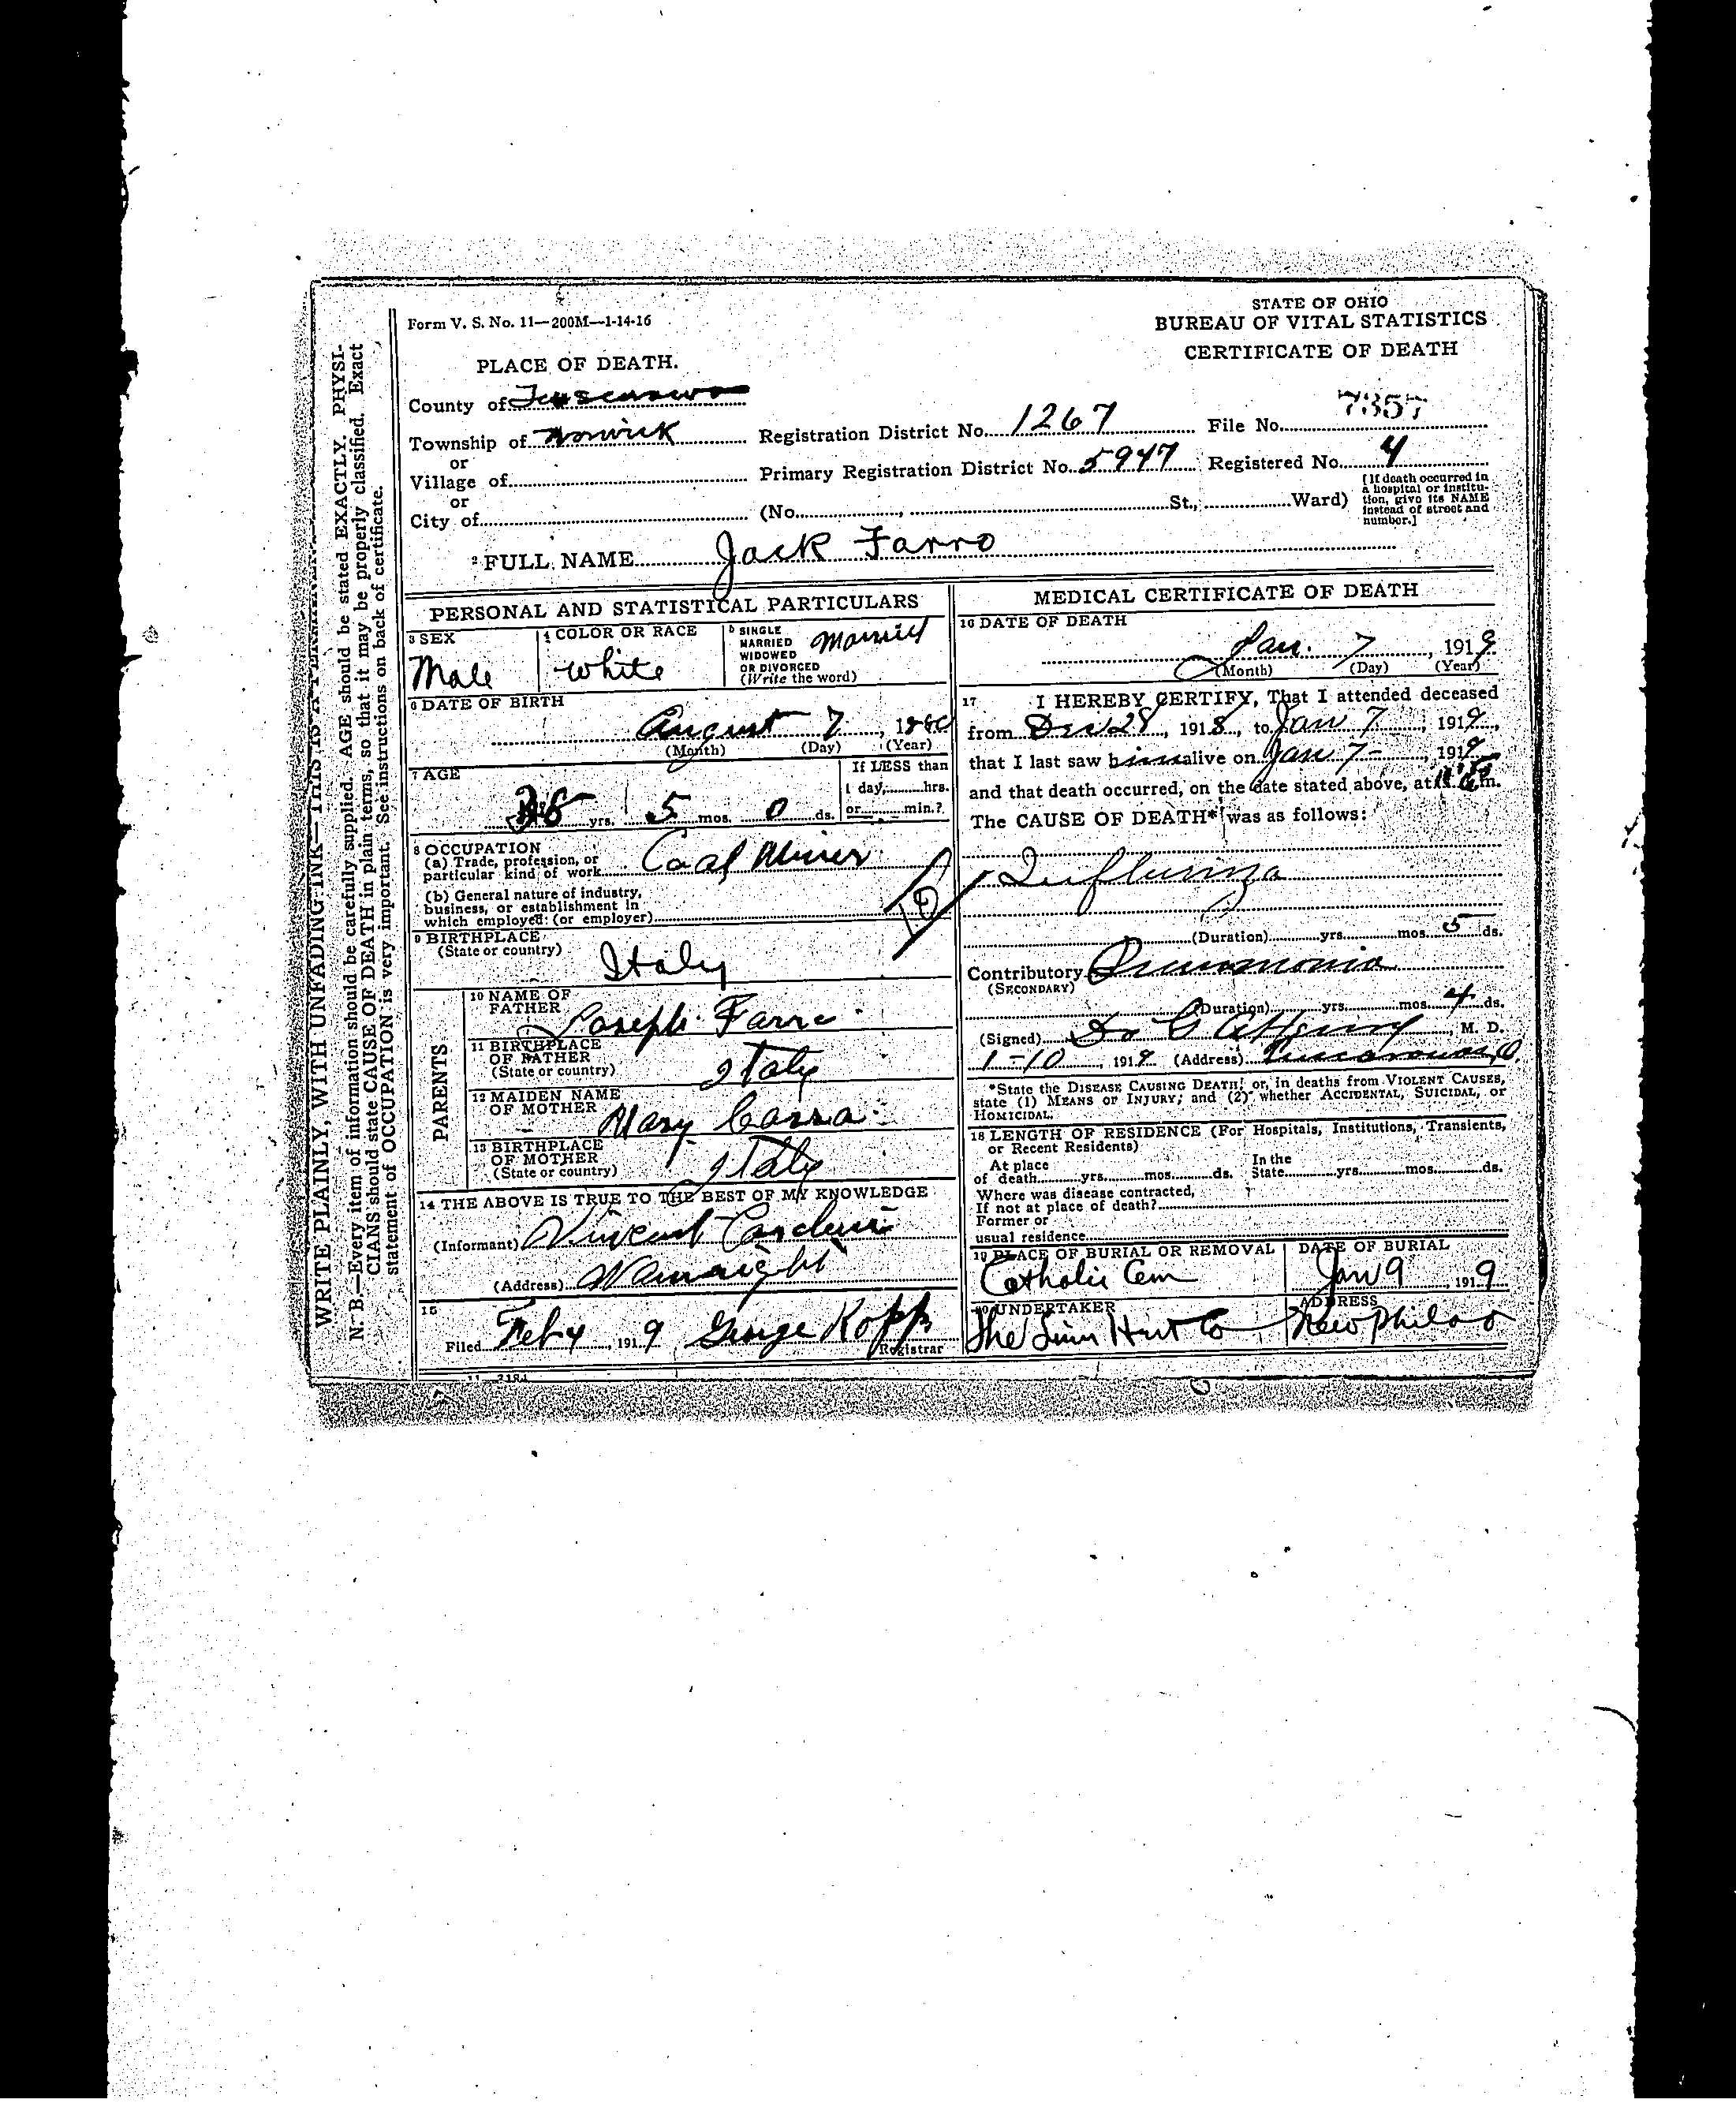 Form V. S. No. 11—200M—1-14-16
STATE OF OHIO
BUREAU OF VITAL STATISTICS
CERTIFICATE OF DEATH
PLACE OF DEATH.
County of
Township of Warwick
or
Village of
or
City of
Registration District No. 1267
File No. 7357
Primary Registration District No. 5947
Registered No. 4
(No. , St.; Ward)
[If death occurred in
a hospital or institu-
tion, give its NAME
instead of street and
number.]
2 FULL NAME Jack Farro
PERSONAL AND STATISTICAL PARTICULARS
3 SEX
Male
4 COLOR OR RACE
White
5 SINGLE
MARRIED
WIDOWED
OR DIVORCED
(Write the word)
Married
6 DATE OF BIRTH
August 7, 1880
(Month) (Day) (Year)
7 AGE
38 yrs. 5 mos. 0 ds.
If LESS than
1 day, hrs.
or min.?
8 OCCUPATION
(a) Trade, profession, or
particular kind of work Coal Miner
(b) General nature of industry,
business, or establishment in
which employed (or employer)
9 BIRTHPLACE
(State or country)
Italy
PARENTS
10 NAME OF
FATHER
Joseph Farro
11 BIRTHPLACE
OF FATHER
(State or country)
Italy
12 MAIDEN NAME
OF MOTHER
Mary Carra
13 BIRTHPLACE
OF MOTHER
(State or country)
Italy
14 THE ABOVE IS TRUE TO THE BEST OF MY KNOWLEDGE
(Informant) Vincent
(Address) Wainright
15
Filed Feb 4, 1919 George Kopp
Registrar
11—3184
MEDICAL CERTIFICATE OF DEATH
16 DATE OF DEATH
Jan. 7, 1919
(Month) (Day) (Year)
17 I HEREBY CERTIFY, That I attended deceased
from Dec 28, 1918, to Jan 7, 1919,
that I last saw him alive on Jan 7, 1919
and that death occurred, on the date stated above, at m.
The CAUSE OF DEATH* was as follows:
Influenza
10
(Duration) yrs. mos. 5 ds.
Contributory Pneumonia
(SECONDARY)
(Duration) yrs. mos. 4 ds.
(Signed) , M. D.
1-10, 1919 (Address) Tuscarawas, O.
*State the DISEASE CAUSING DEATH, or, in deaths from VIOLENT CAUSES,
state (1) MEANS OF INJURY; and (2) whether ACCIDENTAL, SUICIDAL, or
HOMICIDAL.
18 LENGTH OF RESIDENCE (For Hospitals, Institutions, Transients,
or Recent Residents)
At place
of death yrs. mos. ds.
In the
State yrs. mos. ds.
Where was disease contracted,
If not at place of death?
Former or
usual residence
19 PLACE OF BURIAL OR REMOVAL
Catholic Cem
DATE OF BURIAL
Jan 9 1919
20 UNDERTAKER
The Linn Hert Co
ADDRESS
New Phila O
WRITE PLAINLY, WITH UNFADING INK—THIS IS A PERMANENT
N. B.—Every item of information should be carefully supplied. AGE should be stated EXACTLY. PHYSI-
CIANS should state CAUSE OF DEATH in plain terms, so that it may be properly classified. Exact
statement of OCCUPATION is very important. See instructions on back of certificate.